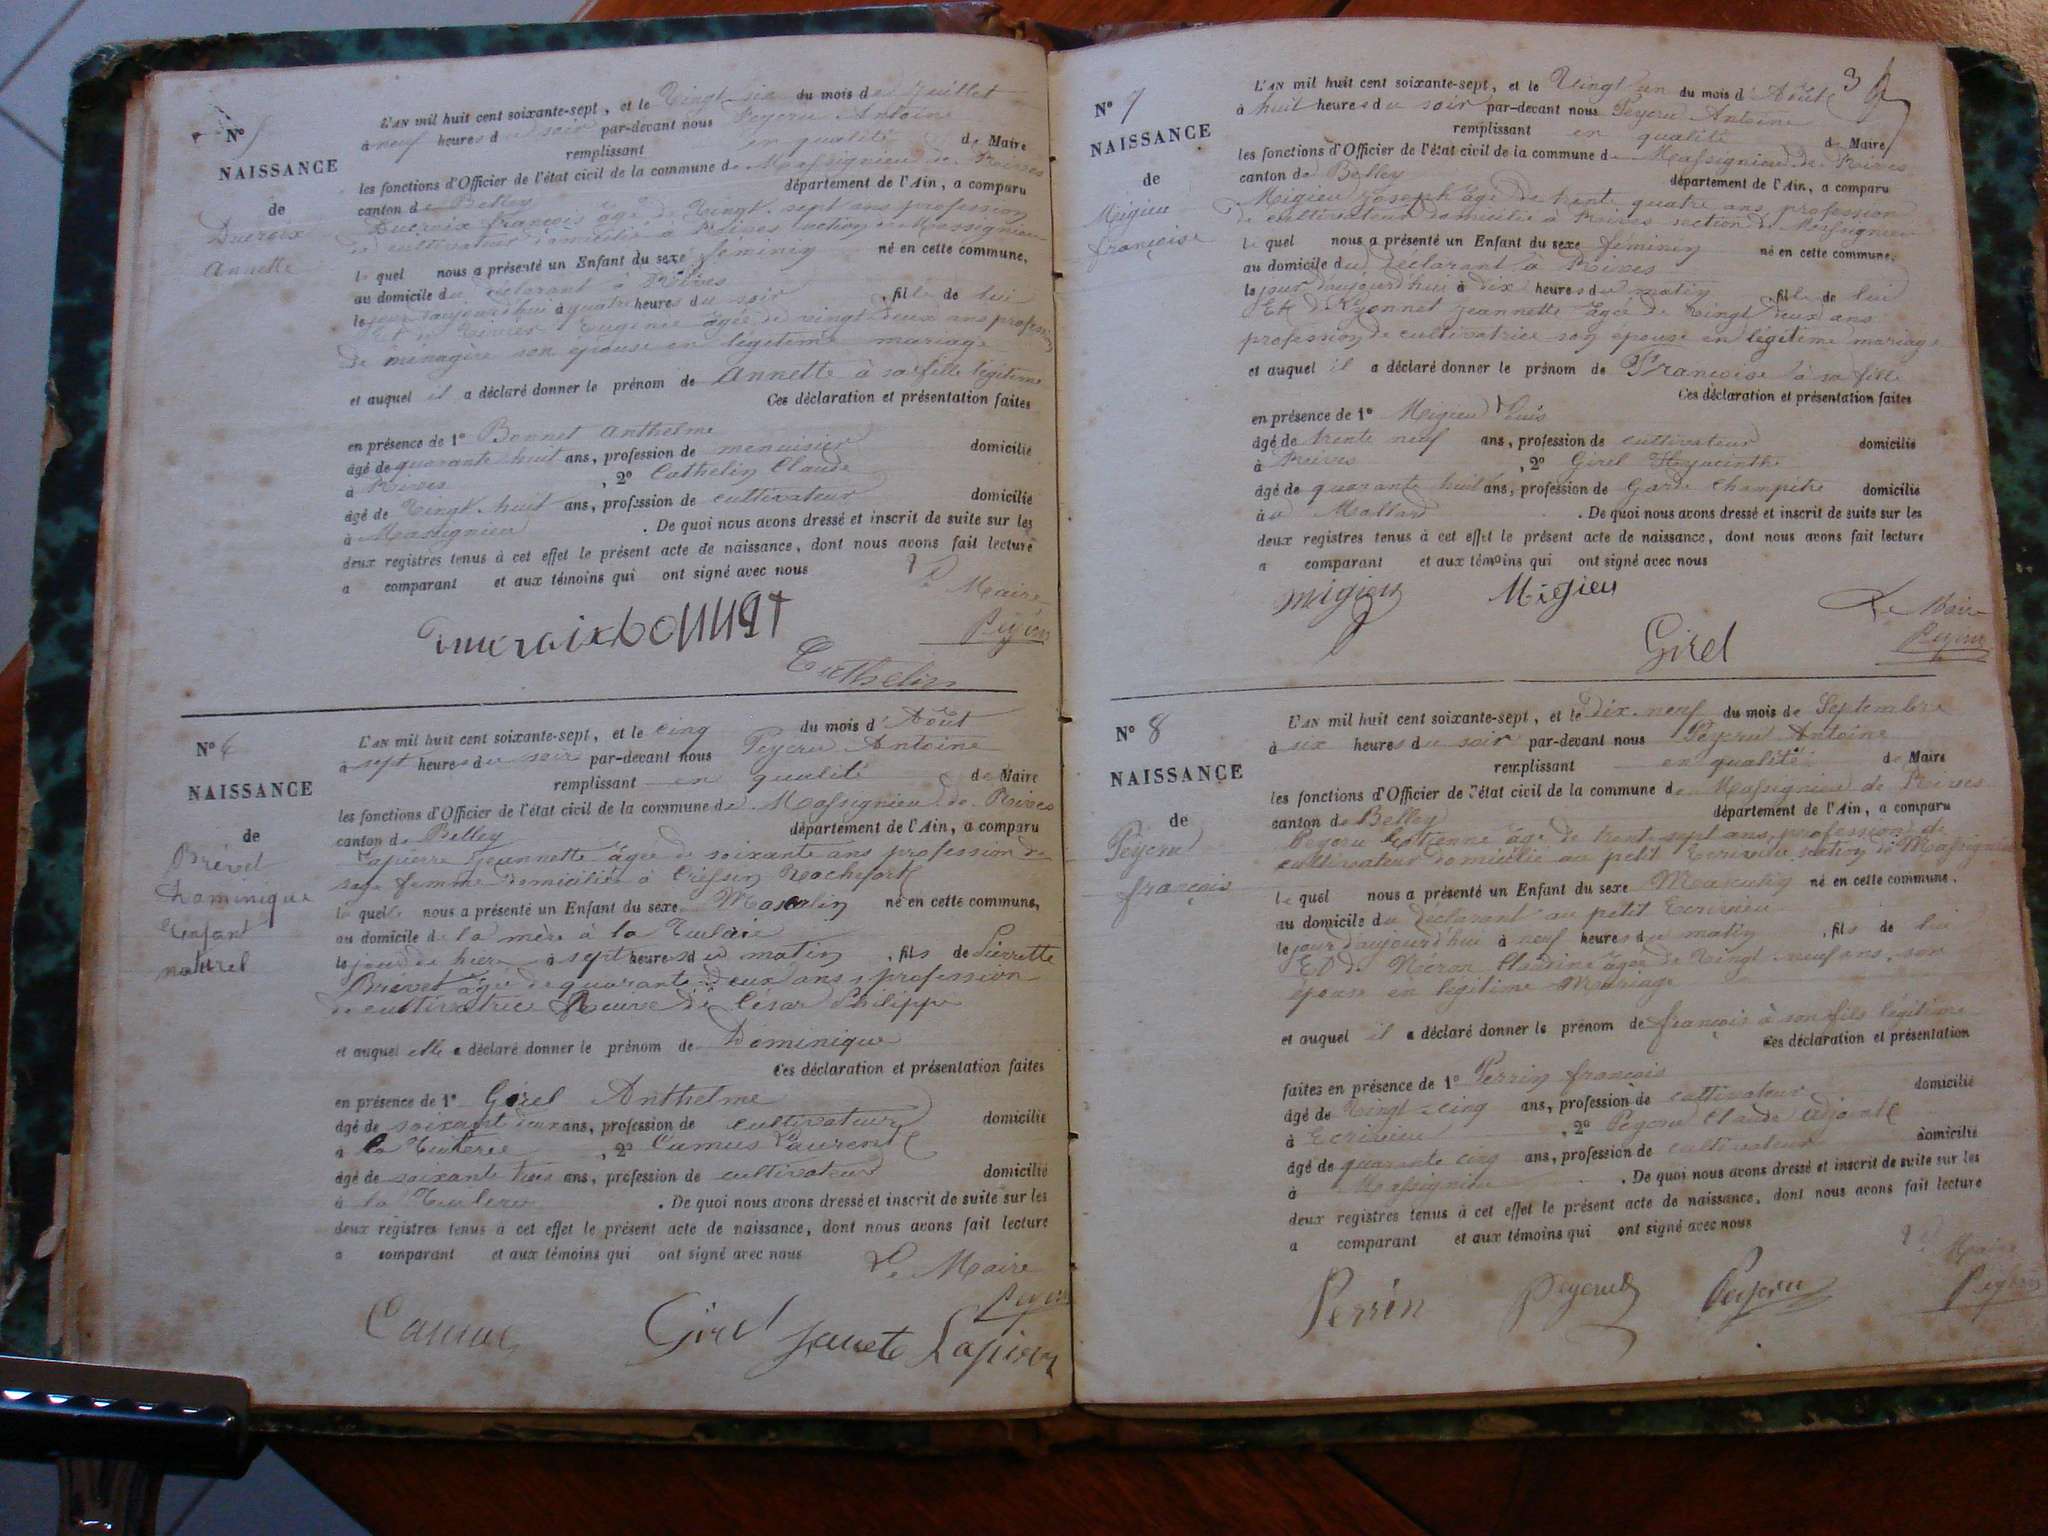 N° 5
NAISSANCE
de
Ducroix
Annette
L'AN mil huit cent soixante-sept, et le Vingt six du mois de Juillet
à neuf heures du soir par-devant nous Peycru Antoine
remplissant en qualité de Maire
les fonctions d'Officier de l'état civil de la commune de Massignieu de Rives
canton de Belley département de l'Ain, a comparu
Ducroix françois âgé de Vingt-sept ans profession
de cultivateur domicilié à Rives section de Massignieu
le quel nous a présenté un Enfant du sexe féminin né en cette commune,
au domicile du déclarant à Rives
le jour d'aujourd'hui à quatre heures du soir, fille de lui
Et de Eugénie âgée de vingt deux ans profession
de ménagère son épouse en légitime mariage
et auquel il a déclaré donner le prénom de Annette à sa fille légitime
Ces déclaration et présentation faites
en présence de 1° Bonnet Anthelme
âgé de quarante huit ans, profession de menuisier domicilié
à Rives, 2° Cathelin Claude
âgé de Vingt-huit ans, profession de cultivateur domicilié
à Massignieu. De quoi nous avons dressé et inscrit de suite sur les
deux registres tenus à cet effet le présent acte de naissance, dont nous avons fait lecture
a comparant et aux témoins qui ont signé avec nous
Le Maire
Ducroix bonnet Peycru
Cathelin
N° 6
NAISSANCE
de
Brévet
Dominique
Enfant
naturel
L'AN mil huit cent soixante-sept, et le cinq du mois d'Août
à sept heures du soir par-devant nous Peycru Antoine
remplissant en qualité de Maire
les fonctions d'Officier de l'état civil de la commune de Massignieu de Rives
canton de Belley département de l'Ain, a comparu
Lapierre Jeannette âgée de soixante ans profession de
sage femme domiciliée à Cressin Rochefort
la quelle nous a présenté un Enfant du sexe Masculin né en cette commune,
au domicile de la mère à la Tuilerie
le jour de hier à sept heures du matin, fils de Pierrette
Brévet âgée de quarante deux ans, profession
de cultivatrice Veuve de César Philippe
et auquel elle a déclaré donner le prénom de Dominique
Ces déclaration et présentation faites
en présence de 1° Girel Anthelme
âgé de soixante deux ans, profession de cultivateur domicilié
à la Tuilerie, 2° Camus Laurent
âgé de soixante trois ans, profession de cultivateur domicilié
à la Tuilerie. De quoi nous avons dressé et inscrit de suite sur les
deux registres tenus à cet effet le présent acte de naissance, dont nous avons fait lecture
a comparant et aux témoins qui ont signé avec nous
Le Maire
Peycru
Camus Girel Janete Lapierre
3
N° 7
NAISSANCE
de
Migieu
françoise
L'AN mil huit cent soixante-sept, et le Vingt un du mois d'Août
à huit heures du soir par-devant nous Peycru Antoine
remplissant en qualité de Maire
les fonctions d'Officier de l'état civil de la commune de Massignieu de Rives
canton de Belley département de l'Ain, a comparu
Migieu Joseph âgé de trente quatre ans, profession
de cultivateur domicilié à Rives section de Massignieu
le quel nous a présenté un Enfant du sexe féminin né en cette commune,
au domicile du déclarant à Rives
le jour d'aujourd'hui à dix heures du matin, fille de lui
Et de Jeannette âgée de Vingt deux ans
profession de cultivatrice son épouse en légitime mariage
et auquel il a déclaré donner le prénom de Françoise à sa fille
Ces déclaration et présentation faites
en présence de 1° Migieu Louis
âgé de trente neuf ans, profession de cultivateur domicilié
à Rives, 2° Girel Hyacinthe
âgé de quarante huit ans, profession de Garde Champêtre domicilié
à Mallard. De quoi nous avons dressé et inscrit de suite sur les
deux registres tenus à cet effet le présent acte de naissance, dont nous avons fait lecture
a comparant et aux témoins qui ont signé avec nous
migieu Migieu Le Maire
Girel Peycru
N° 8
NAISSANCE
de
Peycru
françois
L'AN mil huit cent soixante-sept, et le Dix-neuf du mois de Septembre
à six heures du soir par-devant nous Peycru Antoine
remplissant en qualité de Maire
les fonctions d'Officier de l'état civil de la commune de Massignieu de Rives
canton de Belley département de l'Ain, a comparu
Peycru Etienne âgé de trente-sept ans, profession de
cultivateur domicilié au petit Ecrivieu section de Massignieu
le quel nous a présenté un Enfant du sexe Masculin né en cette commune,
au domicile du déclarant au petit Ecrivieu
le jour d'aujourd'hui à neuf heures du matin, fils de lui
Et de Claudine âgée de Vingt-neuf ans, son
épouse en légitime Mariage
et auquel il a déclaré donner le prénom de françois à son fils légitime
Ces déclaration et présentation
faites en présence de 1° Perrin françois
âgé de Vingt-cinq ans, profession de cultivateur domicilié
à Ecrivieu, 2° Peycru Claude adjoint
âgé de quarante cinq ans, profession de cultivateur domicilié
à Massignieu. De quoi nous avons dressé et inscrit de suite sur les
deux registres tenus à cet effet le présent acte de naissance, dont nous avons fait lecture
a comparant et aux témoins qui ont signé avec nous
Le Maire
Perrin Peycru Peycru Peycru